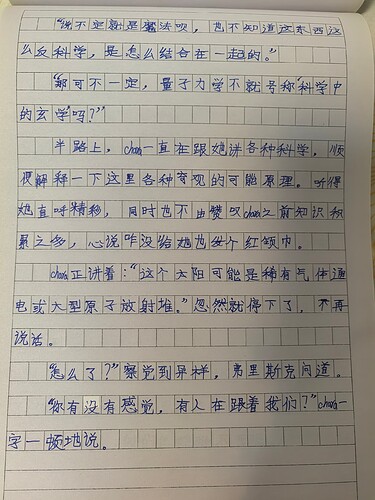 “说不定就是魔法呗，也不知道这东西这
么反科学，是怎么结合在一起的。”
“那可不一定，量子力学不就号称“科学中
的玄学吗？”
半路上，chara一直在跟她讲各种科学，顺
便解释一下这里各种奇观的可能原理。听得
她直呼精彩，同时也不由赞叹chara之前知识积
累之多，心说咋没给她也发个红领巾。
chara正讲着：“这个太阳可能是稀有气体通
电或大型原子放射堆。”忽然就停下了，不再
说话。
“怎么了？”察觉到异样，弗里斯克问道。
“你有没有感觉，有人在跟着我们？”chara一
字一顿地说。